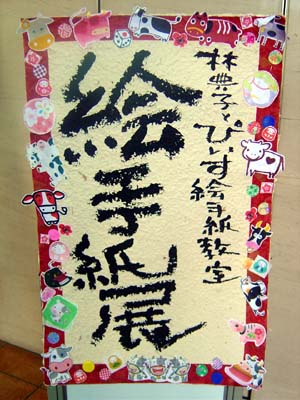 林典子とぴいす絵手紙教室
絵手紙展